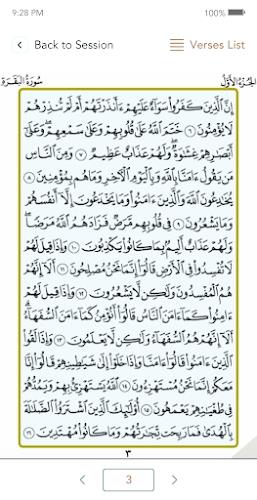 9:28 PM 100%
Back to Session Verses List
سُورَةُ البَقَرَةِ الجُزْءُ الأَوَّلُ
إِنَّ الَّذِينَ كَفَرُوا سَوَاءٌ عَلَيْهِمْ ءَأَنذَرْتَهُمْ أَمْ لَمْ تُنذِرْهُمْ
لَا يُؤْمِنُونَ ٦ خَتَمَ اللَّهُ عَلَىٰ قُلُوبِهِمْ وَعَلَىٰ سَمْعِهِمْ وَعَلَىٰ
أَبْصَٰرِهِمْ غِشَٰوَةٌ وَلَهُمْ عَذَابٌ عَظِيمٌ ٧ وَمِنَ النَّاسِ
مَن يَقُولُ ءَامَنَّا بِاللَّهِ وَبِالْيَوْمِ الْءَاخِرِ وَمَا هُم بِمُؤْمِنِينَ ٨
يُخَٰدِعُونَ اللَّهَ وَالَّذِينَ ءَامَنُوا وَمَا يَخْدَعُونَ إِلَّا أَنفُسَهُمْ
وَمَا يَشْعُرُونَ ٩ فِي قُلُوبِهِم مَّرَضٌ فَزَادَهُمُ اللَّهُ مَرَضًا
وَلَهُمْ عَذَابٌ أَلِيمٌ بِمَا كَانُوا يَكْذِبُونَ ١٠ وَإِذَا قِيلَ لَهُمْ
لَا تُفْسِدُوا فِي الْأَرْضِ قَالُوا إِنَّمَا نَحْنُ مُصْلِحُونَ ١١ أَلَا إِنَّهُمْ
هُمُ الْمُفْسِدُونَ وَلَٰكِن لَّا يَشْعُرُونَ ١٢ وَإِذَا قِيلَ لَهُمْ
ءَامِنُوا كَمَا ءَامَنَ النَّاسُ قَالُوا أَنُؤْمِنُ كَمَا ءَامَنَ السُّفَهَاءُ
أَلَا إِنَّهُمْ هُمُ السُّفَهَاءُ وَلَٰكِن لَّا يَعْلَمُونَ ١٣ وَإِذَا لَقُوا
الَّذِينَ ءَامَنُوا قَالُوا ءَامَنَّا وَإِذَا خَلَوْا إِلَىٰ شَيَٰطِينِهِمْ قَالُوا إِنَّا
مَعَكُمْ إِنَّمَا نَحْنُ مُسْتَهْزِءُونَ ١٤ اللَّهُ يَسْتَهْزِئُ بِهِمْ وَيَمُدُّهُمْ
فِي طُغْيَٰنِهِمْ يَعْمَهُونَ ١٥ أُولَٰئِكَ الَّذِينَ اشْتَرَوُا الضَّلَٰلَةَ
بِالْهُدَىٰ فَمَا رَبِحَت تِّجَٰرَتُهُمْ وَمَا كَانُوا مُهْتَدِينَ ١٦
٣
3